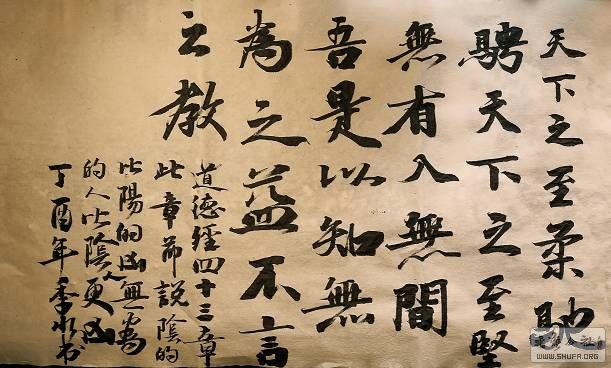 天下之至柔馳
騁天下之至堅
無有入無間
吾是以知無
為之益不言
之教
道德經四十三章
此章節說陰的
比陽的凶無為
的人比陰人更凶
丁酉年季水书
WWW.SHUFA.ORG